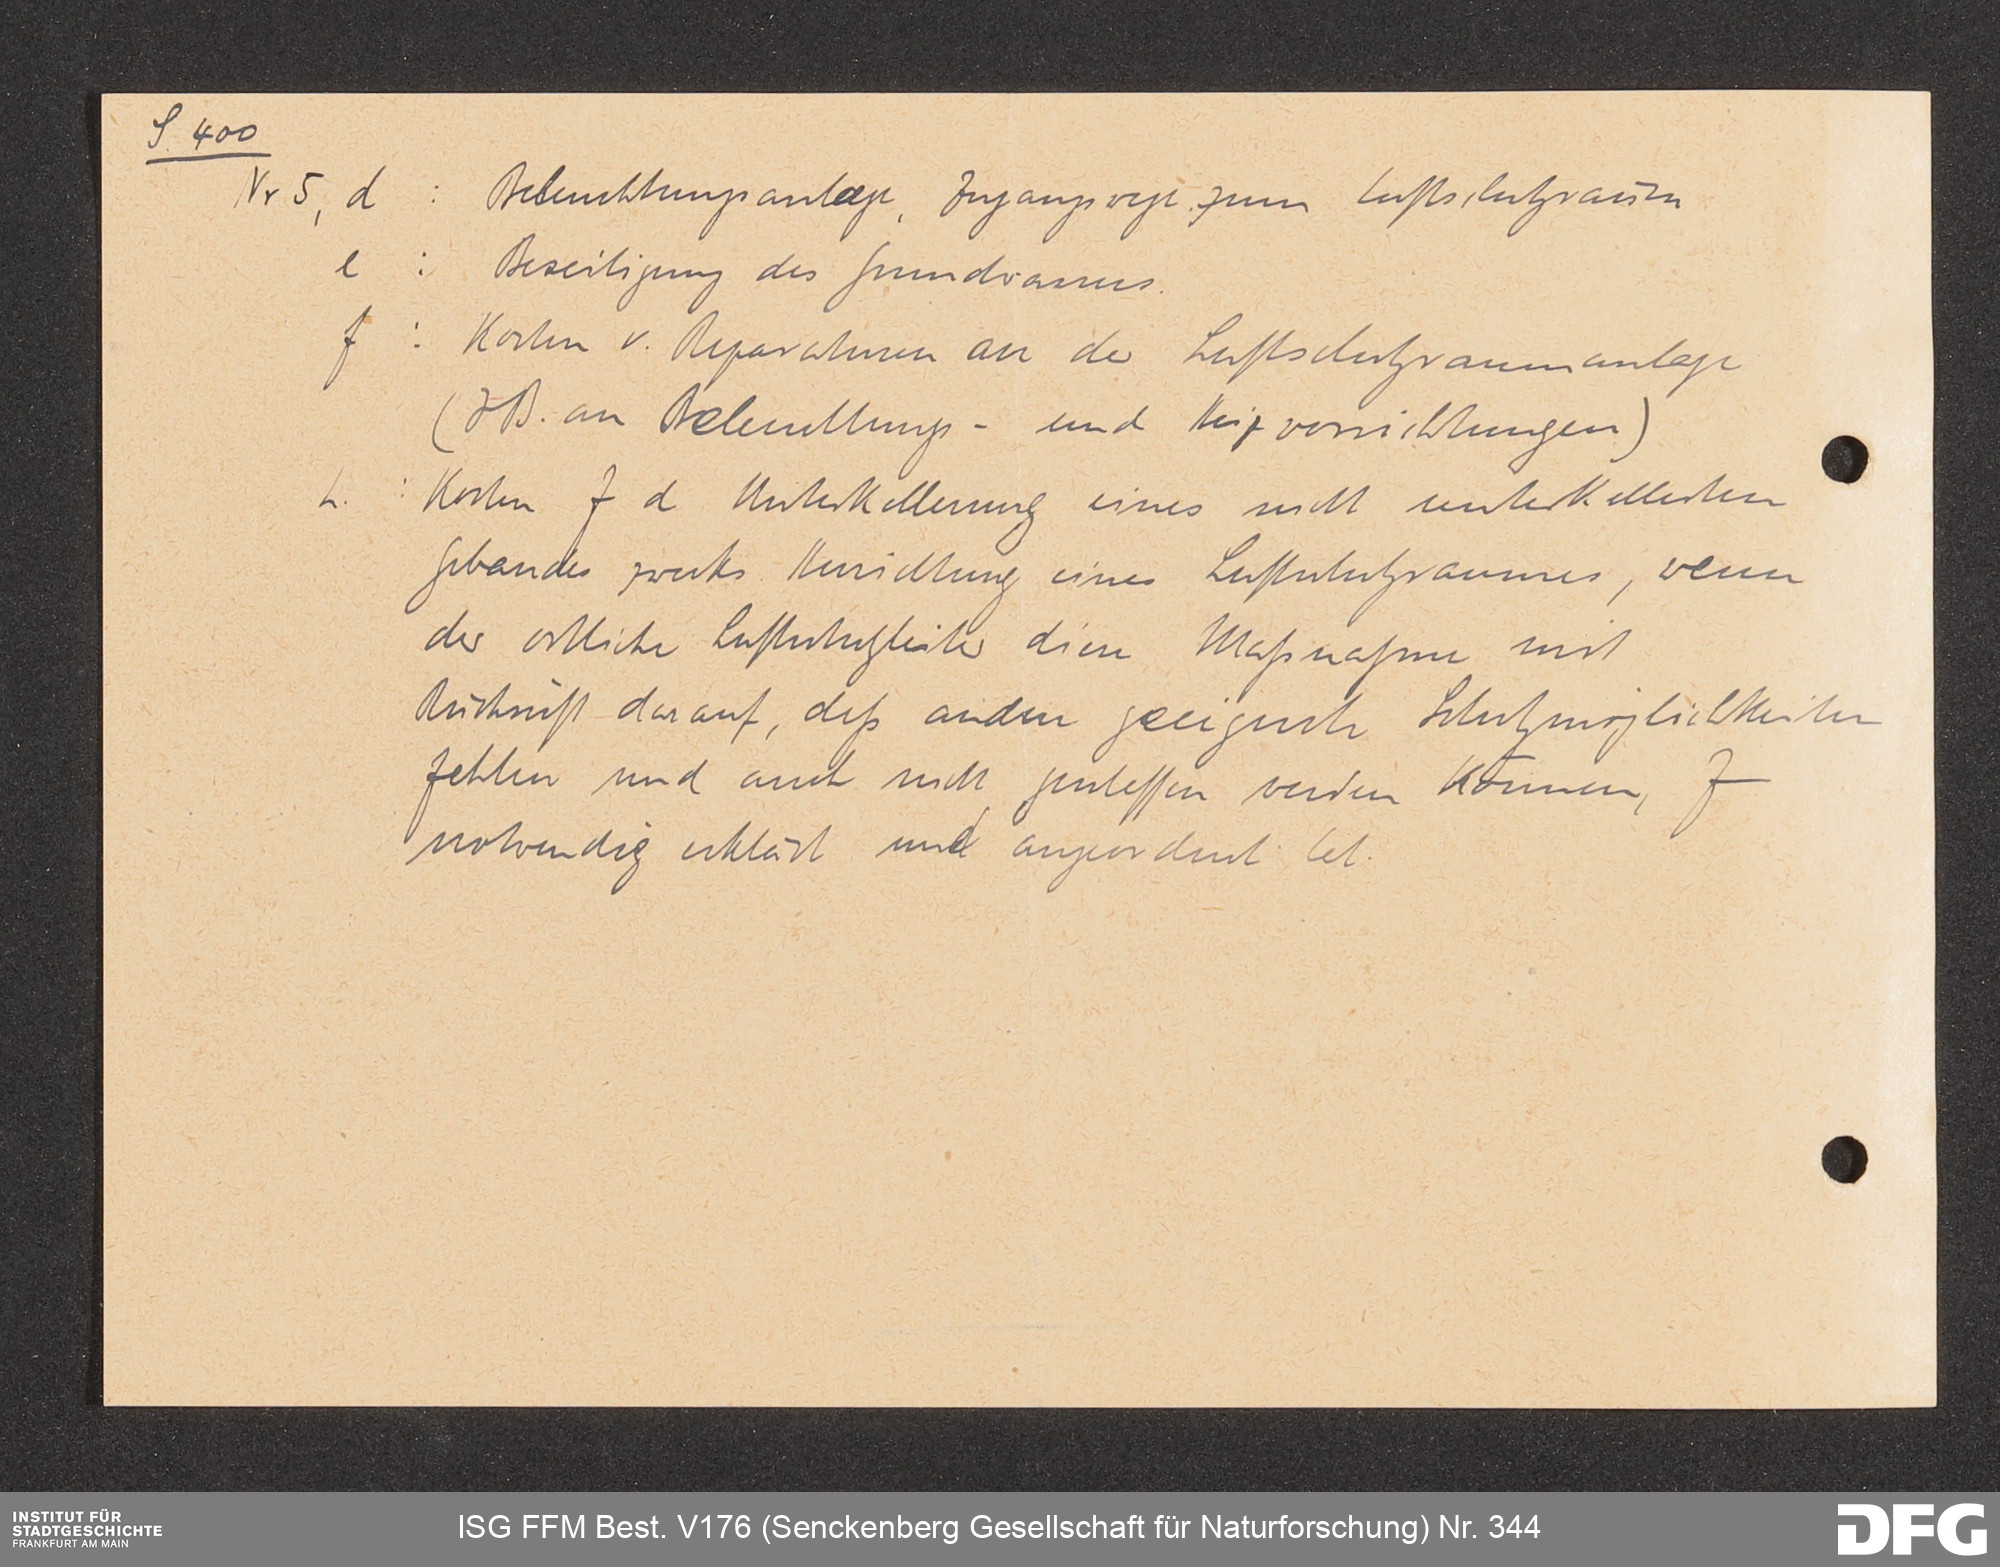 S. 400
Nr 5, d : Beleuchtungsanlage, Zugangswege zum Luftschutzraum
e : Beseitigung des Grundwassers.
f : Kosten v. Reparaturen an der Luftschutzraumanlage
(z.B. an Beleuchtungs- und Heizvorrichtungen)
h. : Kosten f d Unterkellerung eines nicht unterkellerten
Gebäudes zwecks Herrichtung eines Luftschutzraumes, wenn
der örtliche Luftschutzleiter diese Maßnahme mit
Rücksicht darauf, daß andere geeignete Schutzmöglichkeiten
fehlen und auch nicht geschaffen werden können, f
notwendig erklärt und angeordnet hat.
INSTITUT FÜR
STADTGESCHICHTE
FRANKFURT AM MAIN
ISG FFM Best. V176 (Senckenberg Gesellschaft für Naturforschung) Nr. 344
DFG